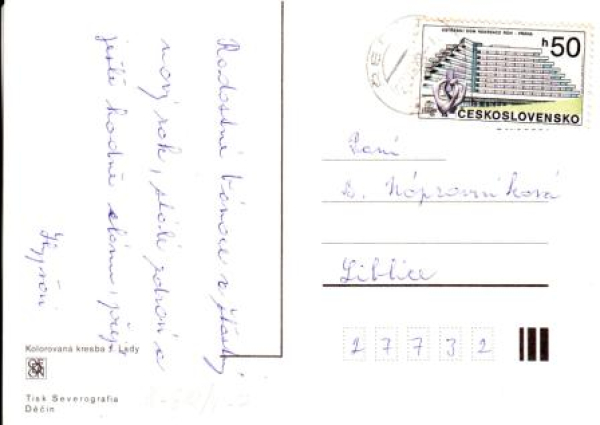 Radostné Vánoce a šťastný
nový rok, stálé zdraví a
ještě hodně elánu, přejí
Kolorovaná kresba J. Lady
Tisk Severografia
Děčín
ÚSTŘEDNÍ DŮM REKREACE ROH - PRAHA
h50
ČESKOSLOVENSKO
Paní
Náprovníková
Liblice
27732